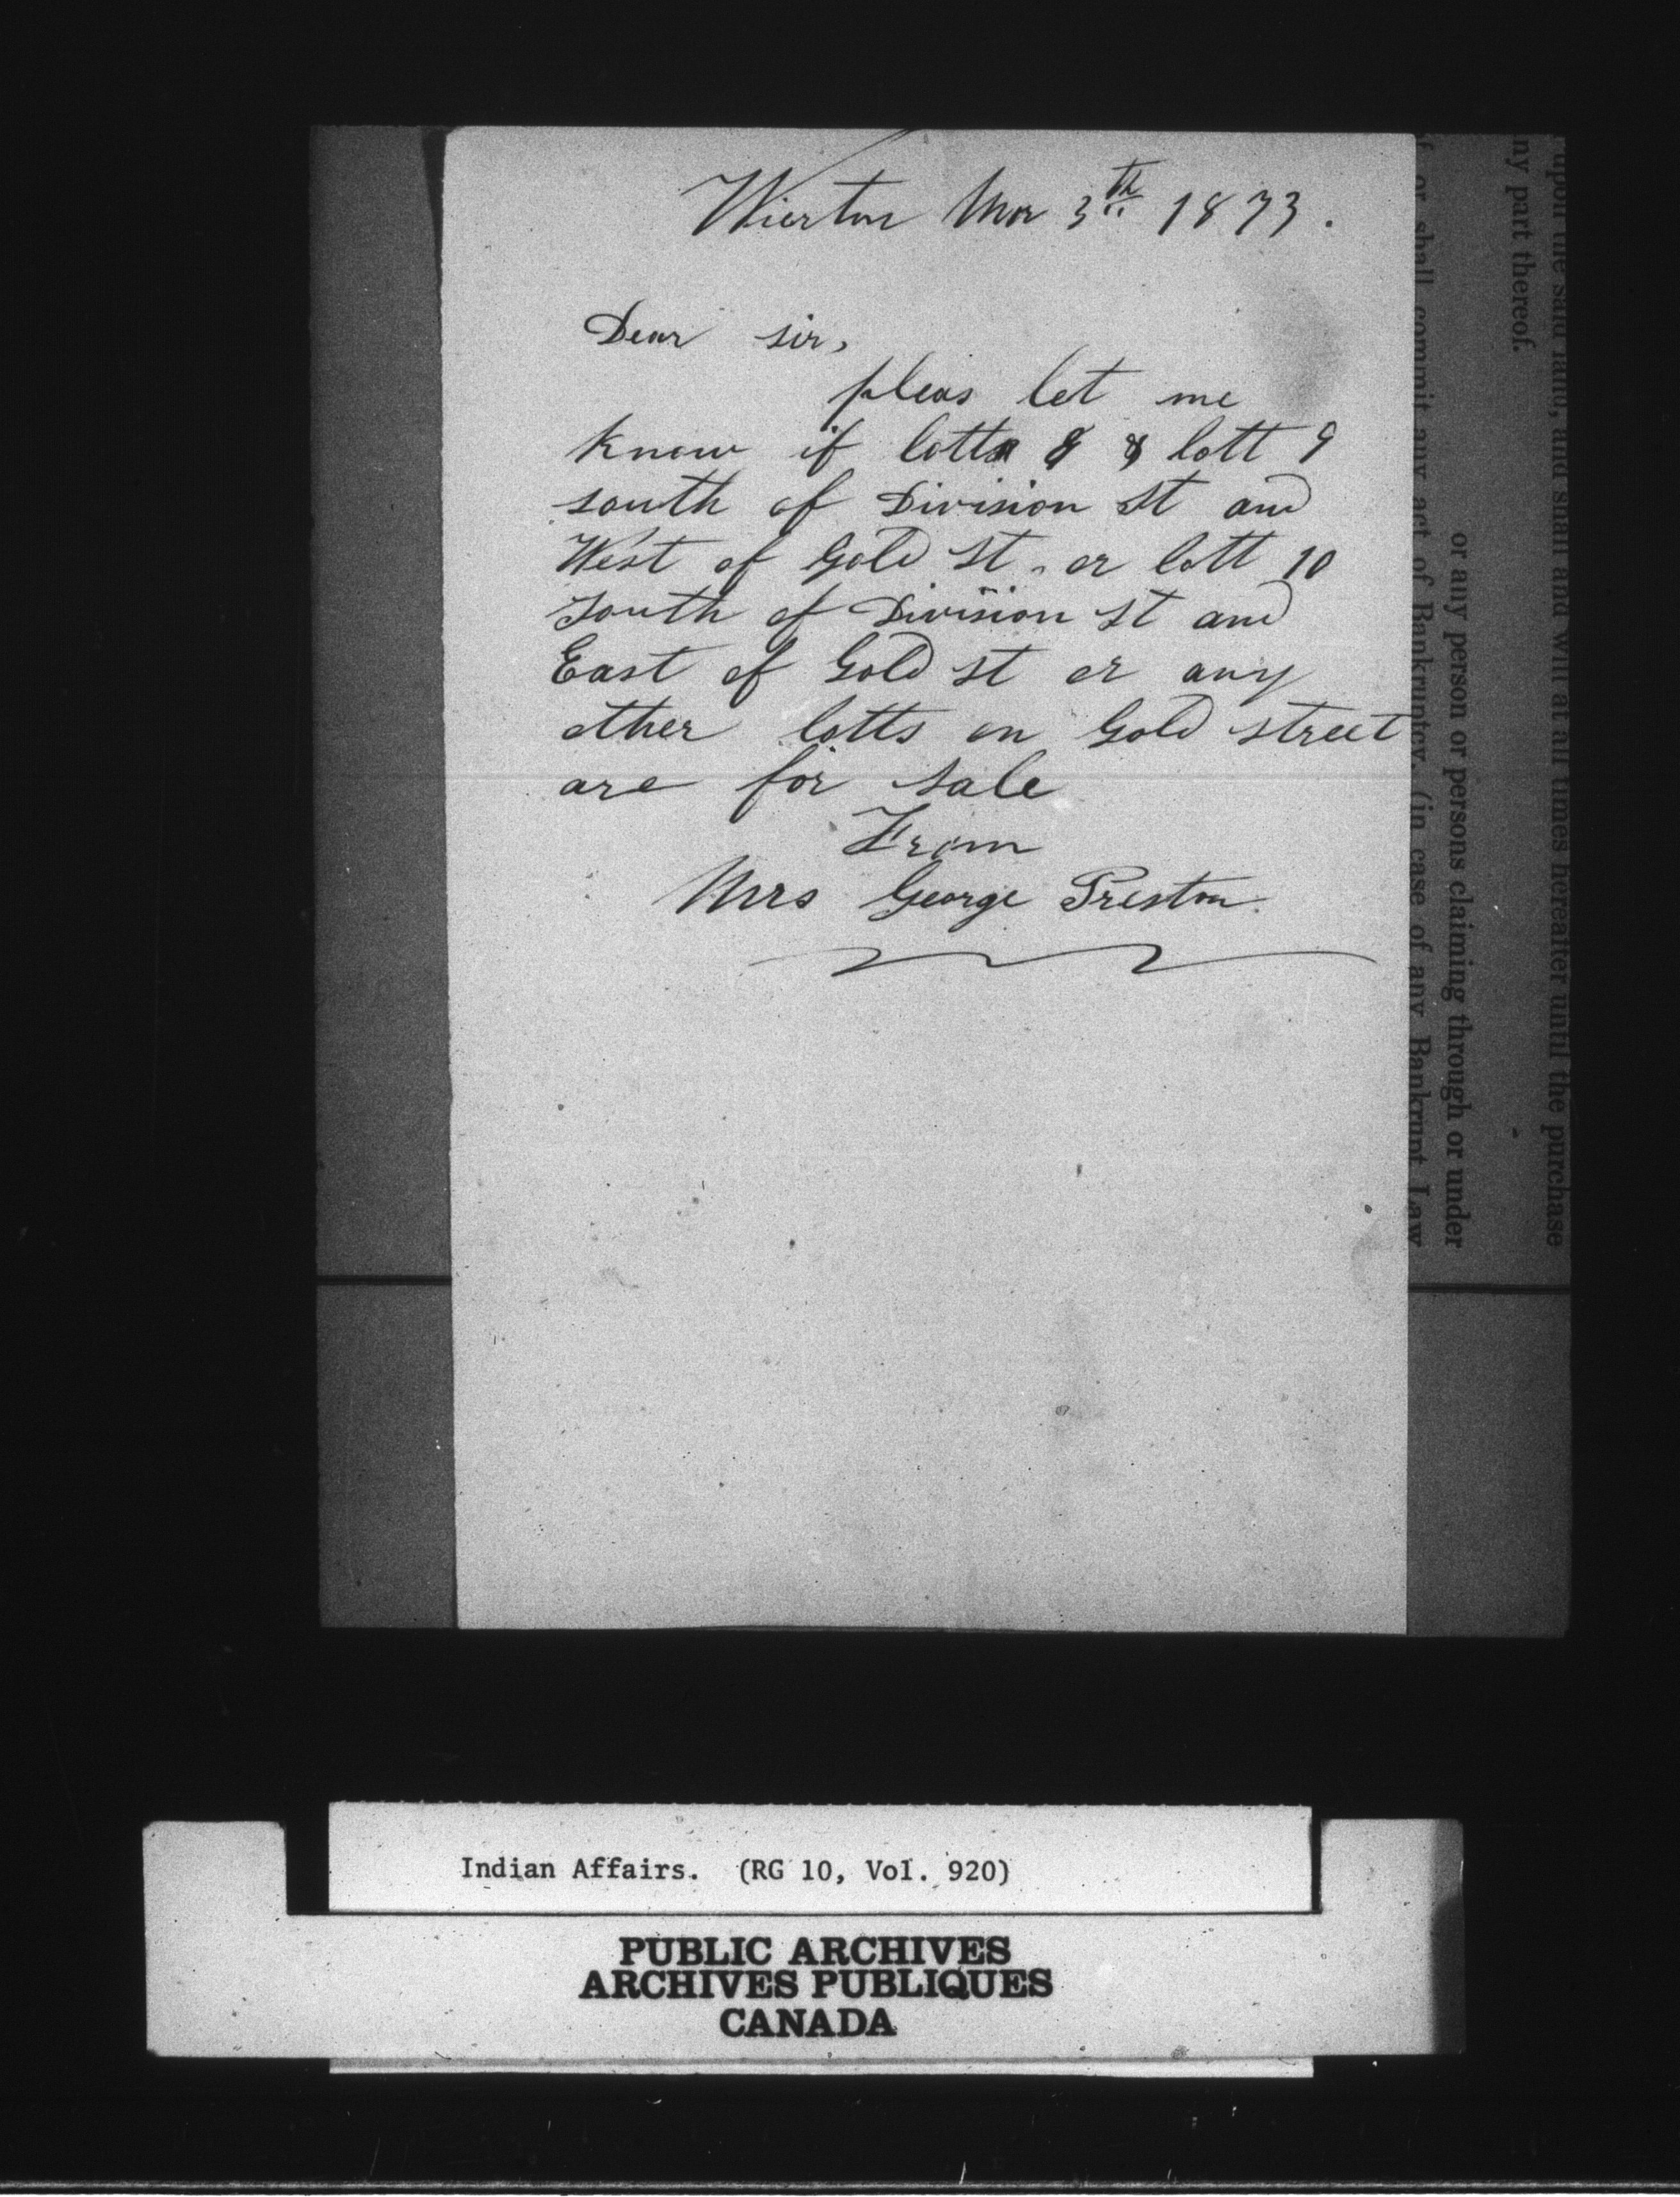 Wierton Mar 3th 1873.
Dear sir,
pleas let me
know if lott 8 & lott 9
south of Division St and
West of Gold St. or lott 10
South of Division St and
East of Gold St or any
other lotts on Gold street
are for sale
From
Mrs George Preston
upon the said land, and shall and will at all times hereafter until the purchase
ny part thereof.
or any person or persons claiming through or under
f or shall commit any act of Bankruptcy, (in case of any Bankrupt Law
Indian Affairs. (RG 10, Vol. 920)
PUBLIC ARCHIVES
ARCHIVES PUBLIQUES
CANADA